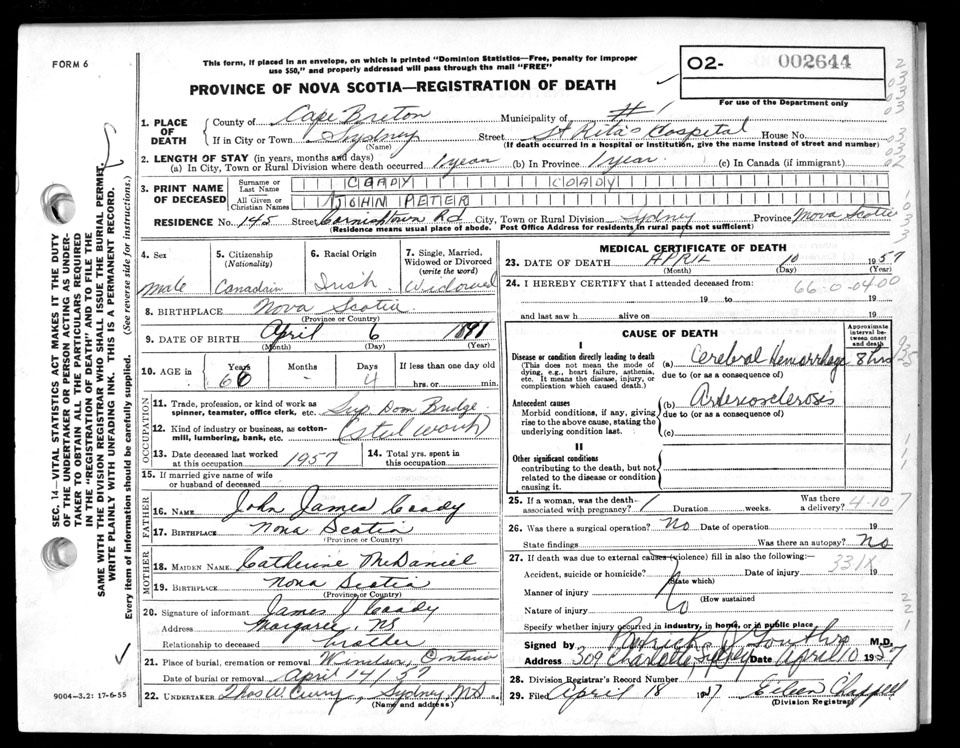 FORM 6
This form, if placed in an envelope, on which is printed "Dominion Statistics—Free, penalty for improper use $50," and properly addressed will pass through the mail "FREE"
PROVINCE OF NOVA SCOTIA—REGISTRATION OF DEATH
O2- 002644
For use of the Department only
1. PLACE OF DEATH
County of Cape Breton Municipality of # 1
If in City or Town Sydney Street St Rita's Hospital House No.
(Name) (If death occurred in a hospital or institution, give the name instead of street and number)
2. LENGTH OF STAY (in years, months and days)
(a) In City, Town or Rural Division where death occurred 1 year (b) In Province 1 year. (c) In Canada (if immigrant)
3. PRINT NAME OF DECEASED
Surname or Last Name COADY COADY
All Given or Christian Names JOHN PETER
RESIDENCE No. 145 Street Rd City, Town or Rural Division Sydney Province Nova Scotia
(Residence means usual place of abode. Post Office Address for residents in rural parts not sufficient)
4. Sex Male
5. Citizenship (Nationality) Canadain
6. Racial Origin Irish
7. Single, Married, Widowed or Divorced (write the word) Widowed
8. BIRTHPLACE Nova Scotia
(Province or Country)
9. DATE OF BIRTH April 6 1891
(Month) (Day)
10. AGE in Years 66 Months - Days 4 If less than one day old
hrs. or min.
OCCUPATION
11. Trade, profession, or kind of work as spinner, teamster, office clerk, etc. Sup Dom Bridge
12. Kind of industry or business, as cotton-mill, lumbering, bank, etc. (steel work)
13. Date deceased last worked at this occupation 1957 14. Total yrs. spent in this occupation
15. If married give name of wife or husband of deceased
FATHER
16. NAME John James Coady
17. BIRTHPLACE Nova Scotia
(Province or Country)
MOTHER
18. MAIDEN NAME Catherine McDaniel
19. BIRTHPLACE Nova Scotia
(Province or Country)
20. Signature of informant James J Coady
Address Margaree, NS
Relationship to deceased brother
21. Place of burial, cremation or removal Windsor, Ontario
Date of burial or removal April 14/57
22. UNDERTAKER Thos W. Curry, Sydney N.S.
(Name and address)
MEDICAL CERTIFICATE OF DEATH
23. DATE OF DEATH APRIL 10 1957
(Month) (Day) (Year)
24. I HEREBY CERTIFY that I attended deceased from:
66-0-0400
19 to 19
and last saw h alive on 19
CAUSE OF DEATH
Approximate interval between onset and death
I
Disease or condition directly leading to death
(This does not mean the mode of dying, e.g., heart failure, asthenia, etc. It means the disease, injury, or complication which caused death.)
(a) Cerebral Hemorrhage 8 hrs
due to (or as a consequence of)
Antecedent causes
Morbid conditions, if any, giving rise to the above cause, stating the underlying condition last.
(b) Arteriosclerosis
due to (or as a consequence of)
(c)
II
Other significant conditions
contributing to the death, but not related to the disease or condition causing it.
25. If a woman, was the death associated with pregnancy? Duration weeks. Was there a delivery? 4-10-7
26. Was there a surgical operation? No Date of operation 19
State findings Was there an autopsy? No
27. If death was due to external causes (violence) fill in also the following:—
331X
Accident, suicide or homicide? Date of injury 19
(State which)
Manner of injury No
(How sustained
Nature of injury
Specify whether injury occurred in industry, in home, or in public place
Signed by M.D.
Address 309 Charlotte, Sydney Date April 10 1957
28. Division Registrar's Record Number
29. Filed April 18 1957 Eileen Chappell
(Division Registrar)
SEC. 14—VITAL STATISTICS ACT MAKES IT THE DUTY OF THE UNDERTAKER OR PERSON ACTING AS UNDERTAKER TO OBTAIN ALL THE PARTICULARS REQUIRED IN THE "REGISTRATION OF DEATH" AND TO FILE THE SAME WITH THE DIVISION REGISTRAR WHO SHALL ISSUE THE BURIAL PERMIT.
WRITE PLAINLY WITH UNFADING INK. THIS IS A PERMANENT RECORD.
Every item of information should be carefully supplied. (See reverse side for instructions.)
9004—3.2: 17-6-55